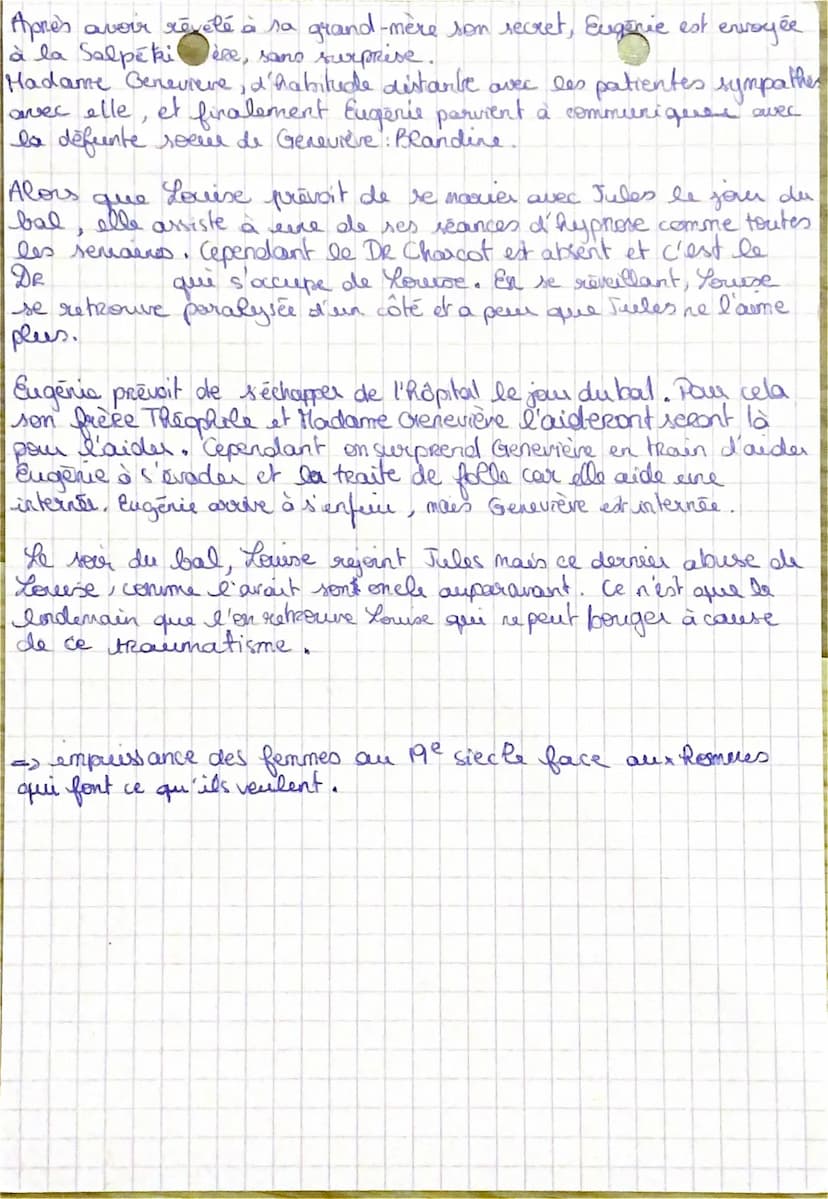 Après avoir révélé à sa grand-mère son secret, Eugénie est envoyée
à la Salpétrière, sans surprise.
Madame Genevieve, d'habitude distante avec les patientes sympathise
avec elle, et finalement Eugénie parvient à communiquer avec
la défunte soeur de Geneviève : Blandine.
Alors que Louise prévoit de se marier avec Jules le jour du
bal, elle assiste à une de ses séances d'hypnose comme toutes
les semaines. Cependant le DR Charcot est absent et c'est le
DR qui s'occupe de Louise. En se réveillant, Louise
se retrouve paralysée d'un côté et a peur que Jules ne l'aime
plus.
Eugénie prévoit de s'échapper de l'hôpital le jour du bal. Pour cela
son frère Théophile et Madame Geneviève l'aideront seront là
pour l'aider. Cependant on surprend Geneviève en train d'aider
Eugénie à s'évader et la traite de folle car elle aide une
internée. Eugénie arrive à s'enfuir, mais Geneviève est internée.
Le soir du bal, Louise rejoint Jules mais ce dernier abuse de
Louise, comme l'avait sont oncle auparavant. Ce n'est que le
lendemain que l'on retrouve Louise qui ne peut bouger à cause
de ce traumatisme.
=> impuissance des femmes au 19e siecle face aux hommes
qui font ce qu'ils veulent.